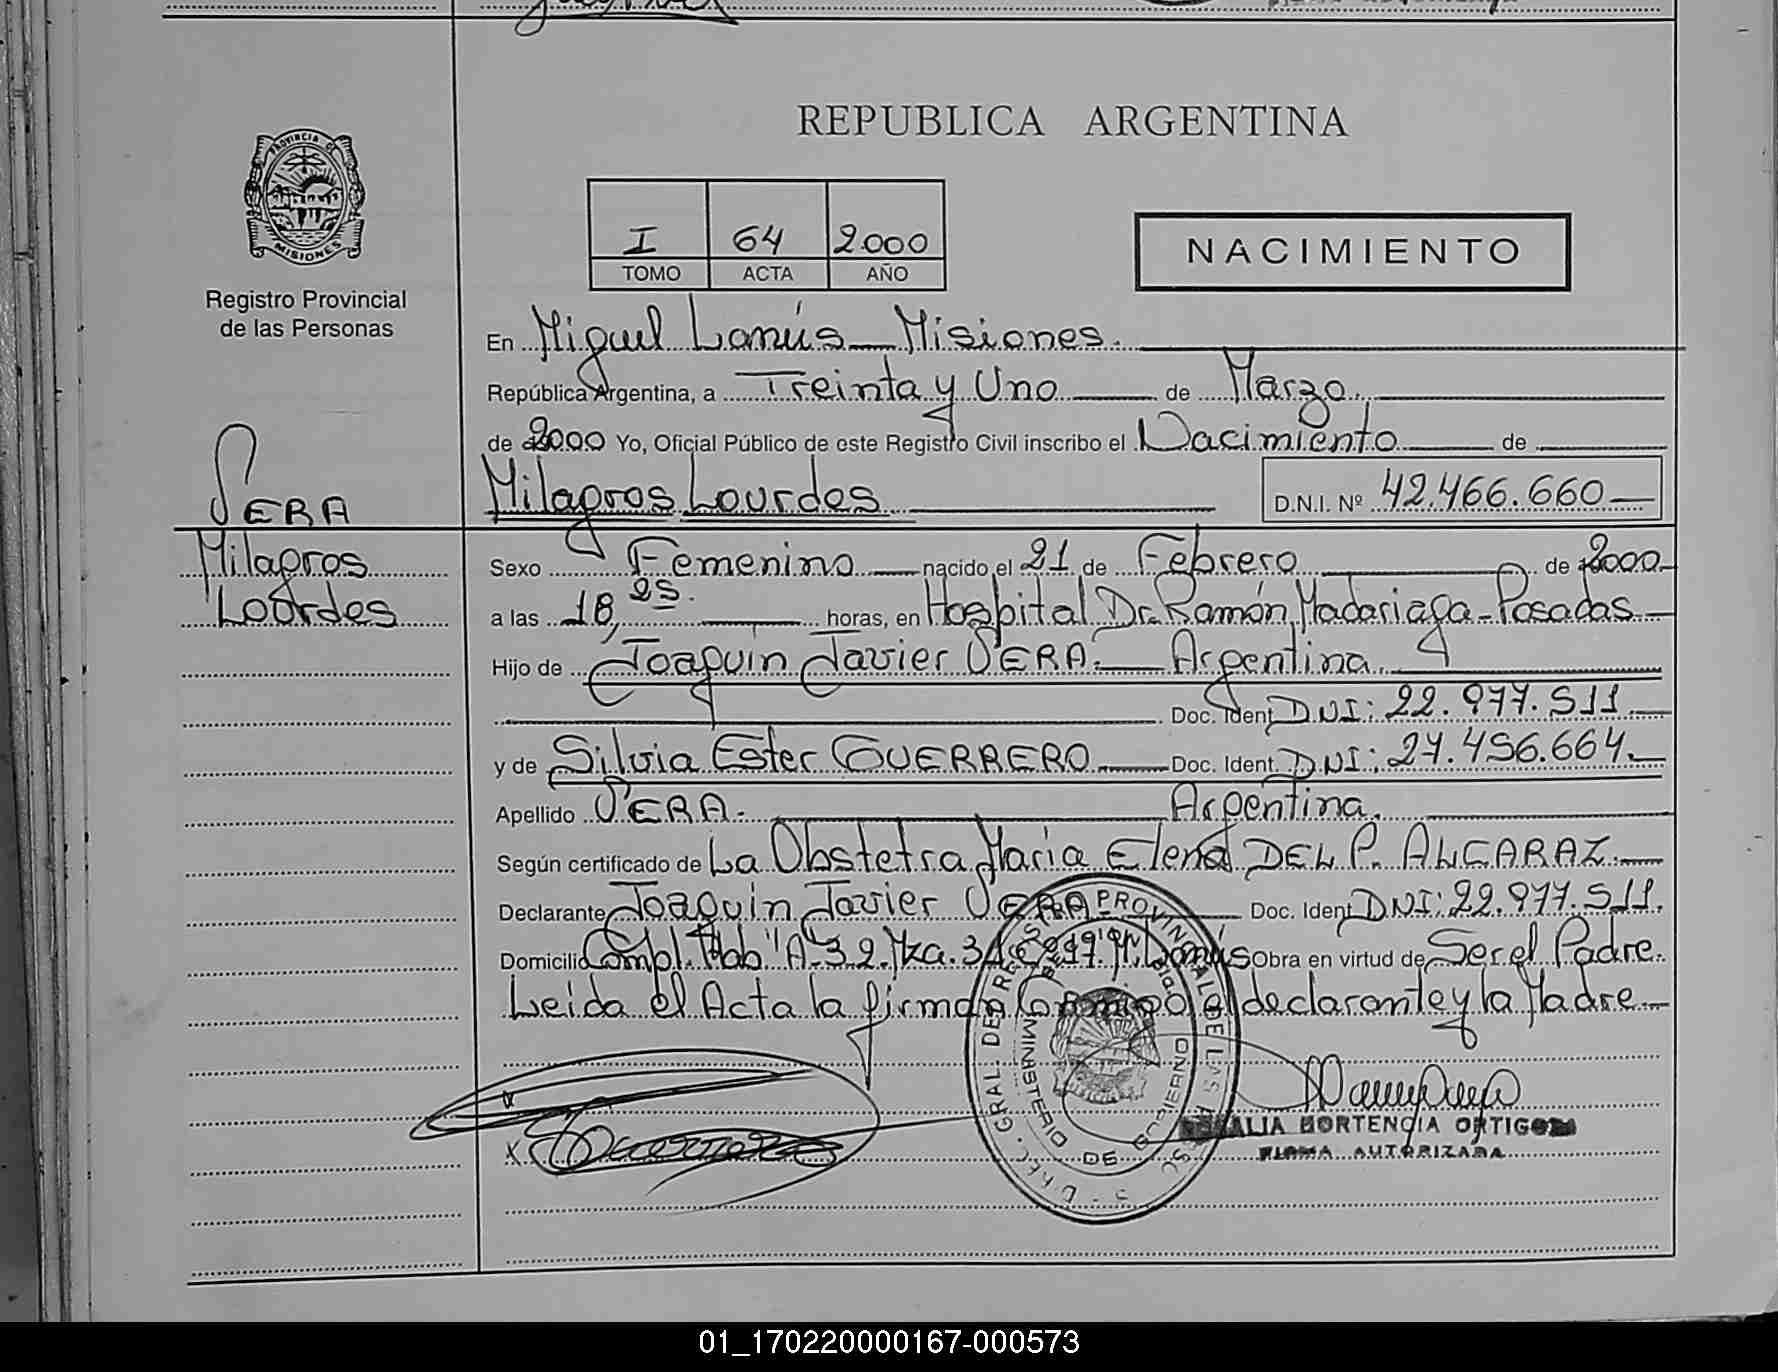 REPUBLICA ARGENTINA
PROVINCIA DE
MISIONES
Registro Provincial
de las Personas
I 64 2.000
TOMO ACTA AÑO
NACIMIENTO
En Miguel Lanús - Misiones.
República Argentina, a Treinta y Uno de Marzo
de 2000 Yo, Oficial Público de este Registro Civil inscribo el Nacimiento de
VERA
Milagros Lourdes D.N.I. Nº 42.466.660
Milagros
Lourdes
Sexo Femenino nacido el 21 de Febrero de 2000
a las 18, 25. horas, en Hospital Dr. Ramón Madariaga - Posadas
Hijo de Joaquin Javier VERA. Argentina.
Doc. Ident DNI: 22.977.511
y de Silvia Ester GUERRERO Doc. Ident. DNI: 27.456.664.
Apellido VERA. Argentina.
Según certificado de La Obstetra Maria Elena DEL P. ALCARAZ
Declarante Joaquin Javier VERA Doc. Ident DNI: 22.977.511.
Domicilio Compl. Hab "A-3.2. Mza. 31 Lanús Obra en virtud de Ser el Padre.
Leida el Acta la firman Conmigo el declarante y la Madre
MINISTERIO DE GOBIERNO
HORTENCIA ORTIGOZA
FIRMA AUTORIZADA
01_170220000167-000573